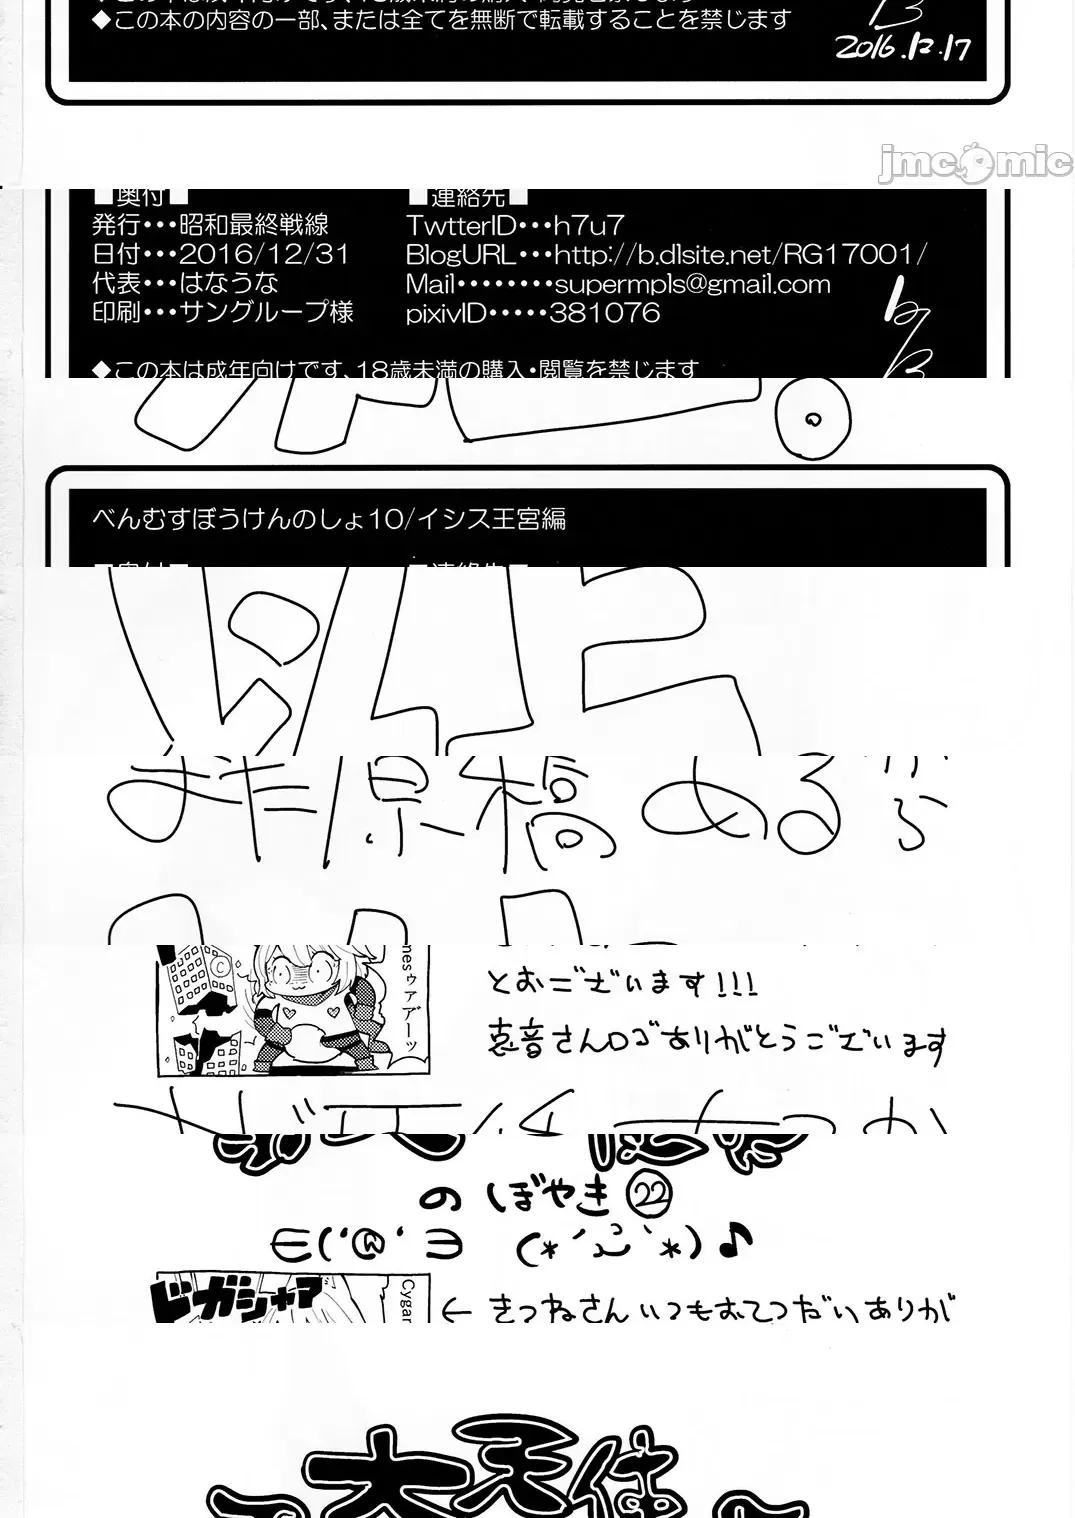 ◆この本の内容の一部、または全てを無断で転載することを禁じます
2016.12.17
jmcomic
■奥付■
■連絡先■
発行・・・昭和最終戦線
TwtterID・・・h7u7
日付・・・2016/12/31
BlogURL・・・http://b.dlsite.net/RG17001/
代表・・・はなうな
Mail・・・・・・・・supermpls@gmail.com
印刷・・・サングループ様
pixivID・・・・・381076
◆この本は成年向けです、18歳未満の購入・閲覧を禁じます
べんむすぼうけんのしょ10/イシス王宮編
また原稿あるから
nesゥアデーッ
とおございます!!!
恵音さんロゴありがとうございます
の ぼやき㉒
∈('@'∋ (*´ㅘ`*)♪
ドガシャァ
Cygar
← きつねさんいつもおてつだいありが
大天使